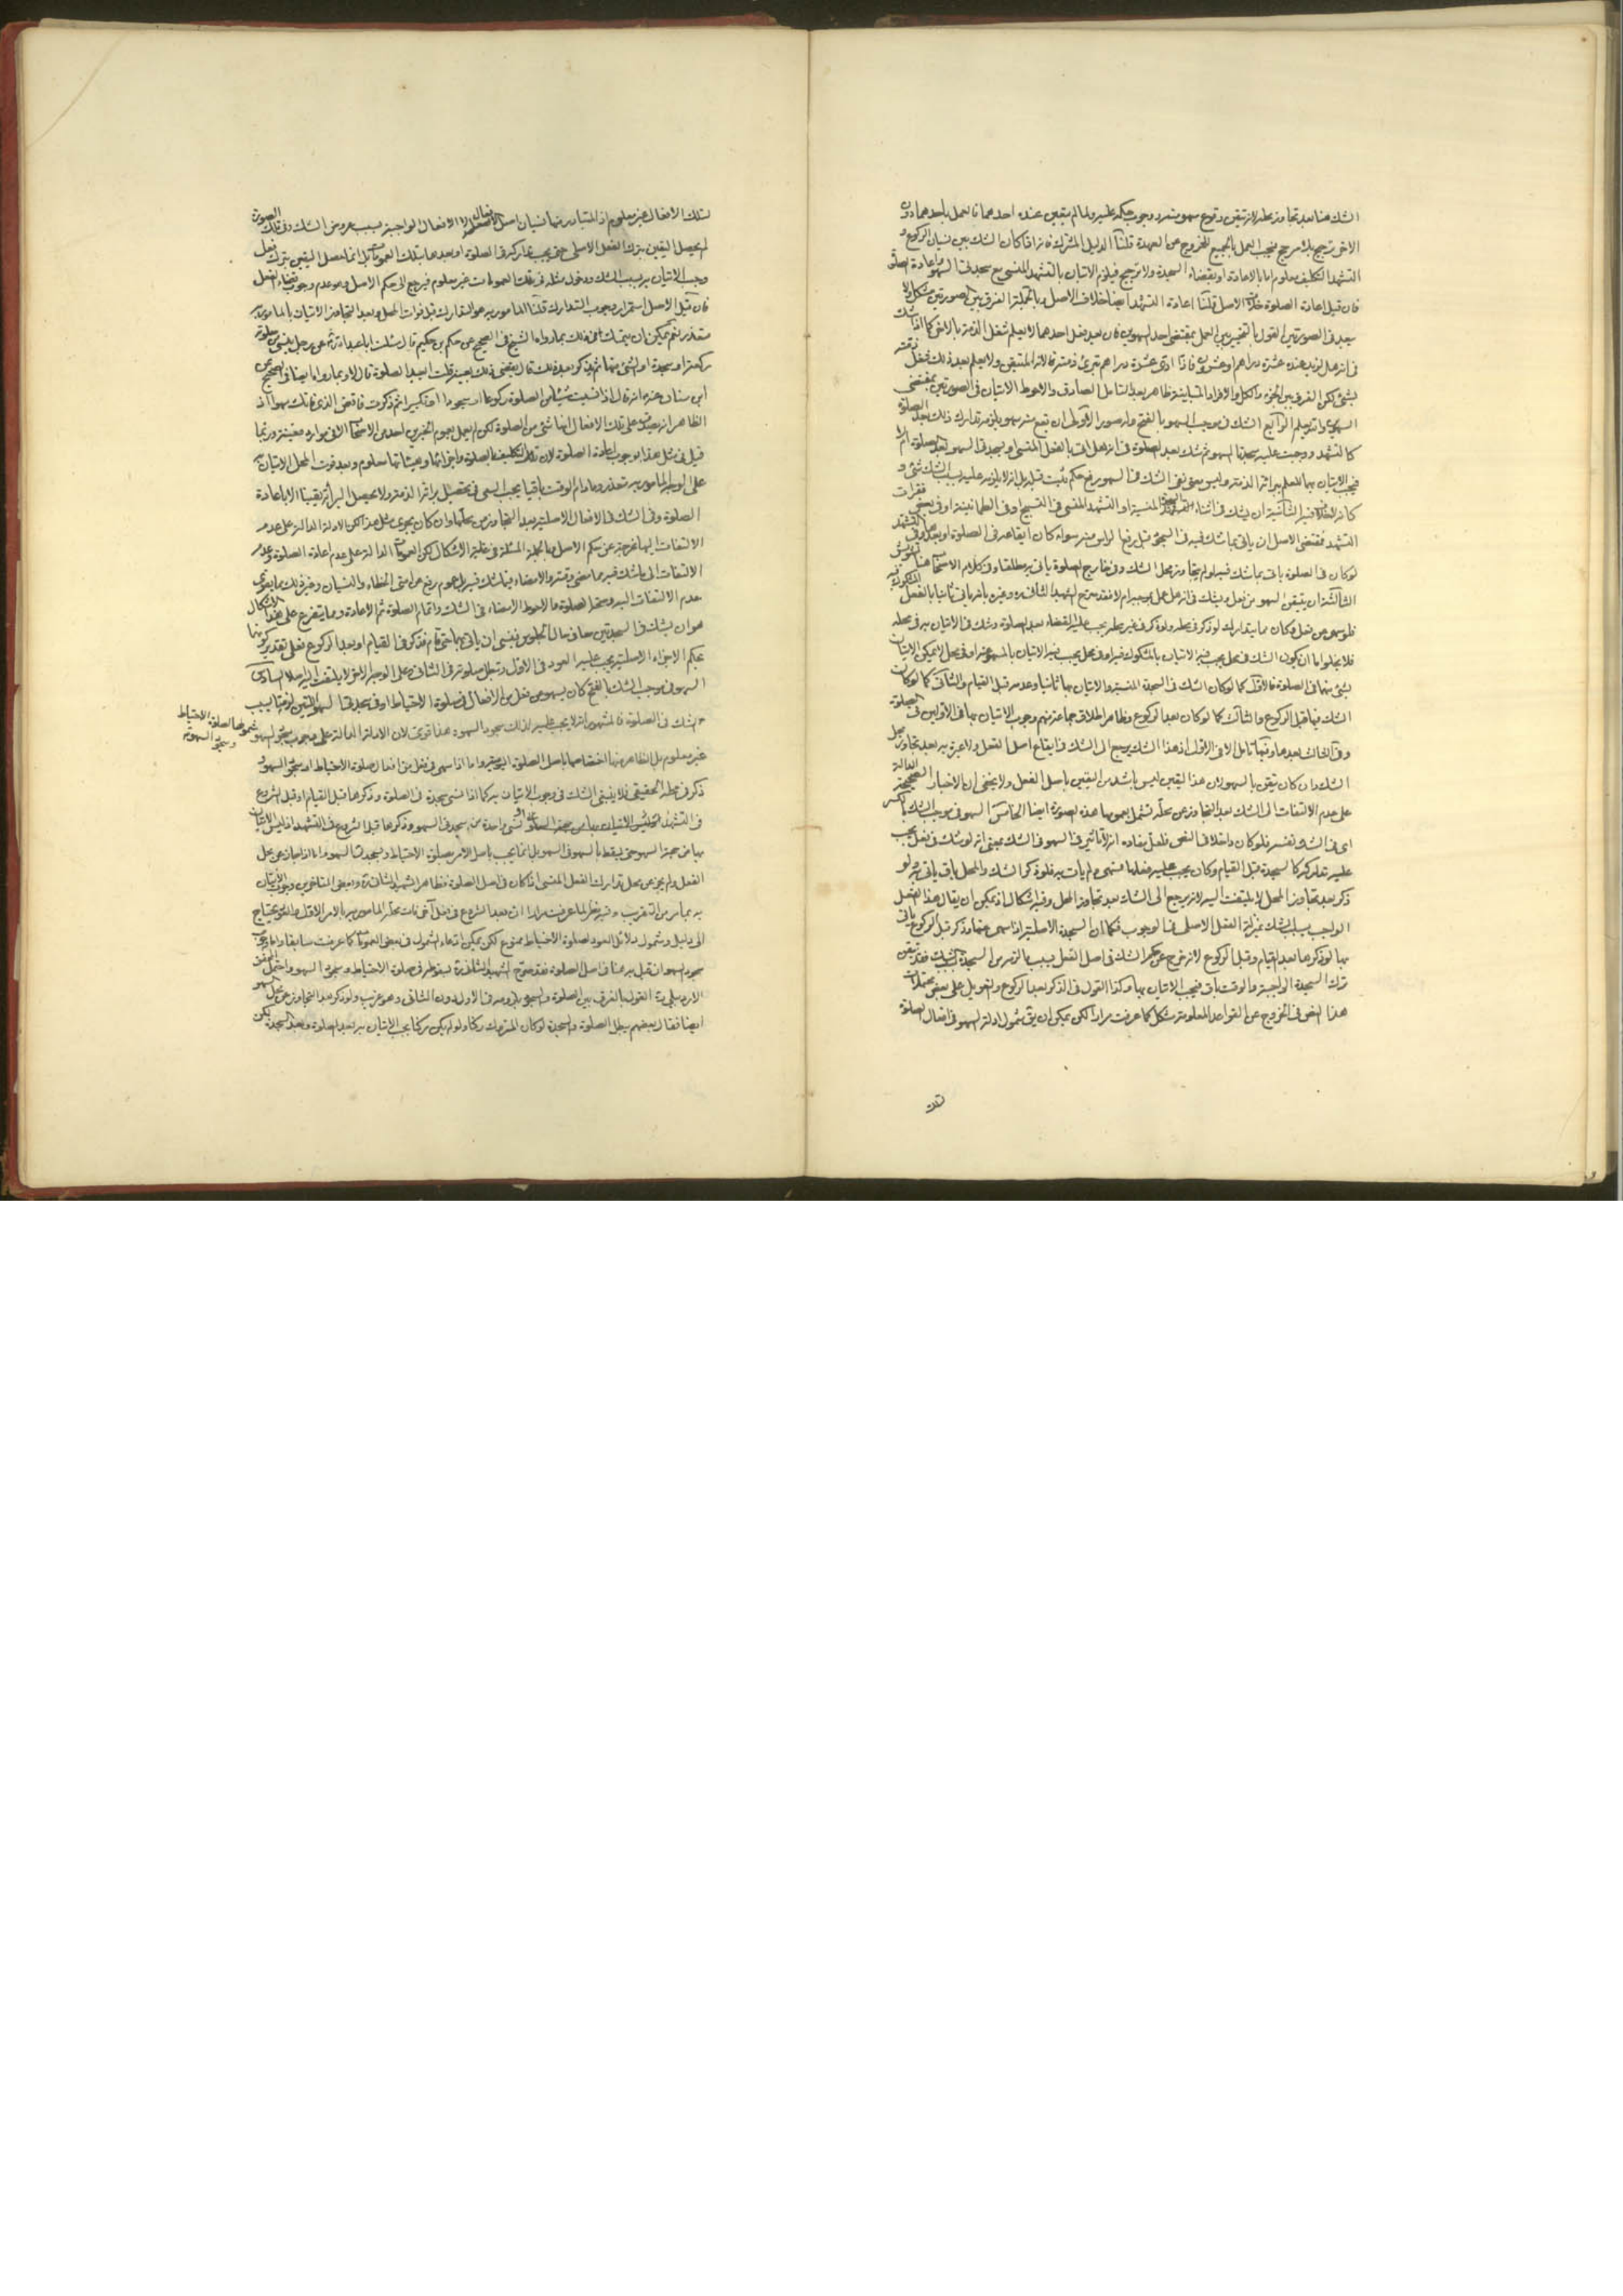 الشك هنا بعد تجاوز محله لانه تيقن وقوع سهو منه ووجوب حكمه عليه ولما لم يتعين عنده احدهما فالعمل باحدهما دون
الاخر ترجيح بلا مرجح فيجب العمل بالجميع للخروج عن العهدة قلنا الدليل المشترك فانه اذا كان الشك بين نسيان الركوع و
التشهد التكليف معلوم اما بالاعادة او بقضاء السجدة ولا ترجيح فيلزم الاتيان بالتشهد المنسي مع سجدتي السهو واعادة الصلوة
فان قيل اعادة الصلوة خلاف الاصل قلنا اعادة التشهد ايضا خلاف الاصل وبالجملة الفرق بين الصورتين مشكل ولا
يبعد في الصورتين القول بالتخيير بين العمل بمقتضى احد السهوين فان بعد فعل احدهما لا يعلم شغل الذمة بالاخرى كما اذا شك
في انه هل لزيد عنده عشرة دراهم او عشرون فاذا ادى عشرة دراهم تبرئ ذمته فانه المتيقن ولا يعلم بعد ذلك شغل ذمته
بشئ لكن الفرق بين الجزء والكل والافراد المتباينة ظاهر بعد التامل الصادق والاحوط الاتيان في الصورتين بمقتضى
السهوين والله يعلم الرابع الشك في موجب السهو بالفتح وله صور الاولى ان يقع منه سهو يلزمه تدارك ذلك بعد الصلوة
كالتشهد ووجبت عليه سجدتا السهو ثم شك بعد الصلوة في انه هل اتى بالفعل المنسي او بسجدتي السهو بعد الصلوة ام لا
فيجب الاتيان بهما للعلم ببراءة الذمة وليس معنى نفي الشك في السهو رفع حكم ثبت قبله بل انه لا يلزمه عليه بسبب الشك شئ و
التشهد فمقتضى الاصل ان ياتي بما شك فيه في السجود قبل رفع الراس منه سواء كان ايقاعه في الصلوة او بعدها وفي التشهد
لو كان في الصلوة ياتي بما شك فيه لو لم يتجاوز محل الشك وفي خارج الصلوة ياتي به مطلقا وفي كلام الاصحاب هنا تشويش
الثالثة ان يتيقن السهو عن فعل ويشك في انه هل عمل بموجبه ام لا فقد صرح الشهيد الثاني ره وغيره بانه ياتي ثانيا بالفعل المشكوك فيه
فلو سهى عن فعل وكان مما يتدارك لو ذكر في محله ولو ذكر في غير محله يجب عليه القضاء بعد الصلوة وشك في الاتيان به في محله
فلا يخلو اما ان يكون الشك في محل يجب فيه الاتيان بالمشكوك فيه او في محل يجب فيه الاتيان بالمسهو عنه او في محل لا يمكن الاتيان
بشئ منهما في الصلوة فالاول كما لو كان الشك في السجدة المنسية والاتيان بها ثانيا وعدمه قبل القيام والثاني كما لو كان
الشك فيها قبل الركوع والثالث كما لو كان بعد الركوع وظاهر اطلاق جماعة منهم وجوب الاتيان بها في الاولين في الصلوة
وفي الثالث بعدها وفيها تامل الا في الاول اذ هذا الشك يرجع الى الشك في ايقاع اصل الفعل ولا عبرة به بعد تجاوز محل
الشك وان كان تيقن بالسهو لان هذا اليقين ليس باشد من اليقين باصل الفعل ولا يخفى ان الاخبار الصحيحة الدالة
على عدم الالتفات الى الشك بعد التجاوز عن محله تشمل بعمومها هذه الصورة ايضا الخامس السهو في موجب الشك بالكسر
اي في الشك نفسه فلو كان داخلا في النص فلعل مفاده انه لا تاثير في السهو في الشك بمعنى انه لو شك في فعل يجب
عليه تداركه كالسجدة قبل القيام وكان يجب عليه فعلها فسهى ولم يات به فلو ذكر الشك والمحل باق ياتي به ولو
ذكر بعد تجاوز المحل لا يلتفت اليه لانه يرجع الى الشك بعد تجاوز المحل وفيه اشكال اذ يمكن ان يقال هذا الفعل
الواجب بسبب الشك بمنزلة الفعل الاصلي في الوجوب فكما ان السجدة الاصلية اذا سهى عنها وذكر قبل الركوع ياتي
بها لو ذكرها بعد القيام وقبل الركوع لانه خرج عن حكم الشك في اصل الفعل بسبب ما لزمه من السجدة بالشك فقد تيقن
ترك السجدة الواجبة والوقت باق فيجب الاتيان بها وكذا القول في الذكر بعد الركوع والتعويل على بعض محتملات
هذا النص في الخروج عن القواعد المعلومة مشكل كما عرفت مرارا لكن يمكن ان يق شمول ادلة السهو في افعال الصلوة
تلك
لتلك الافعال غير معلوم اذ المتبادر منها نسيان اصل الافعال لا الافعال الواجبة بسبب عروض الشك وفي تلك الصورة
لم يحصل اليقين بترك الفعل الاصلي حتى يجب تداركه في الصلوة او بعدها بتلك العمومات بل انما حصل اليقين بترك فعل
وجب الاتيان به بسبب الشك ودخول مثله في تلك العمومات غير معلوم فيرجع الى حكم الاصل وهو عدم وجوب قضاء الفعل
فان قيل الاصل استمرار وجوب التدارك قلنا المامور به هو التدارك قبل فوات المحل وبعد التجاوز الاتيان بالمامور به
متعذر نعم يمكن ان يتمسك في ذلك بما رواه الشيخ في الصحيح عن حكم بن حكيم قال سئلت ابا عبد الله ع عن رجل ينسى من صلوته
ركعة او سجدة او الشئ منها ثم يذكر بعد ذلك قال يقضي ذلك بعينه قلت ايعيد الصلوة قال لا وبما رواه ايضا في الصحيح عن
ابن سنان عنه ع انه قال اذا نسيت شيئا من الصلوة ركوعا او سجودا او تكبيرا ثم ذكرت فاقض الذي فاتك سهوا اذ
الظاهر انه يصدق على تلك الافعال انها شئ من الصلوة لكن لم يعمل بعموم الخبرين احد من الاصحاب الا في موارد معينة وربما
قيل في مثل هذا بوجوب اعادة الصلوة لان التكليف بالصلوة واجزائها وهيئاتها معلوم وبعد فوت المحل الاتيان بها
على الوجه المامور به متعذر وما دام الوقت باقيا يجب السعي في تحصيل براءة الذمة ولا يحصل البراءة يقينا الا باعادة
الصلوة وفي الشك في الافعال الاصلية بعد التجاوز عن محلها وان كان يجري مثل هذا لكن الادلة الدالة على عدم
الالتفات اليها مخرجة عن حكم الاصل وبالجملة المسئلة في غاية الاشكال لكن العمومات الدالة على عدم اعادة الصلوة وعدم
الالتفات الى ما شك فيه مما مضى وقته والامضاء فيما شك فيه بل عموم رفع عن امتي الخطاء والنسيان وغير ذلك مما يقوي
عدم الالتفات اليه وصحة الصلوة والاحوط الامضاء في الشك واتمام الصلوة ثم الاعادة ومما يتفرع على هذا الاشكال
هو ان يشك في السجدتين معا في حال الجلوس فنسي ان ياتي بهما حتى قام فذكر في القيام او بعد الركوع فعلى تقدير كونهما
بحكم الاجزاء الاصلية يجب عليه العود في الاول وتبطل صلوته في الثاني وعلى الوجه الاخر لا يلتفت اليه اصلا السادس
السهو في موجب الشك بالفتح كان يسهو عن فعل من الافعال في صلوة الاحتياط او في سجدتي السهو اللتين لزمتا بسبب
الشك في الصلوة فالمشهور انه لا يجب عليه لذلك سجود السهو وهذا قوي لان الادلة الدالة على وجوب سجود السهو شمولها لصلوة الاحتياط وسجود السهو
غير معلوم بل الظاهر منها اختصاصها باصل الصلوة اليومية واما اذا سهى في فعل من افعال صلوة الاحتياط او سجود السهو و
ذكر في محله الحقيقي فلا ينبغي الشك في وجوب الاتيان به كما اذا نسي سجدة في الصلوة وذكرها قبل القيام او قبل الشروع
في التشهد وليس الاتيان بها من جهة السهو حتى يسقط بالسهو في السهو بل انما يجب باصل الامر بصلوة الاحتياط وبسجدتي السهو واما اذا جاز عن محل
الفعل ولم يجز عن محل تدارك الفعل المنسي اذا كان في اصل الصلوة فظاهر الشهيد الثاني ره وبعض المتاخرين وجوب الاتيان
به بما مر من التقريب وفيه نظر لما عرفت مرارا ان بعد الشروع في فعل آخر فات محل المامور به بالامر الاول والعود يحتاج
الى دليل وشمول دلائل العود لصلوة الاحتياط ممنوع لكن يمكن ادعاء الشمول في بعض العمومات كما عرفت سابقا واما وجوب
ايضا فقال بعضهم يبطل الصلوة والسجدة لو كان المتروك ركنا ولو لم يكن ركنا يجب الاتيان به بعد الصلوة وبعد السجدة لكن